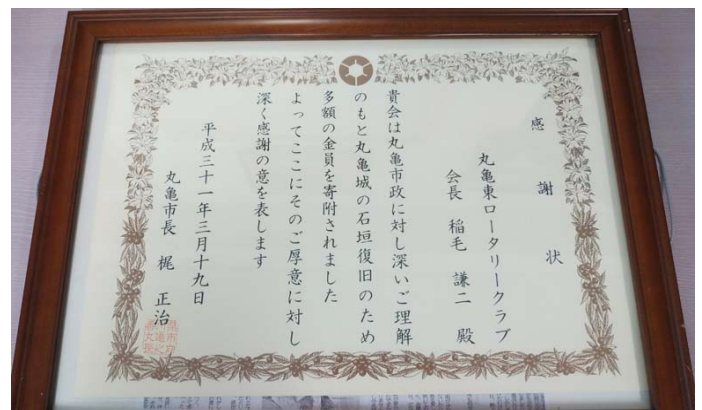 感謝状
丸亀東ロータリークラブ
会長 稲毛 謙二 殿
貴会は丸亀市政に対し深いご理解
のもと丸亀城の石垣復旧のため
多額の金員を寄附されました
よってここにそのご厚意に対し
深く感謝の意を表します
平成三十一年三月十九日
丸亀市長 梶 正治